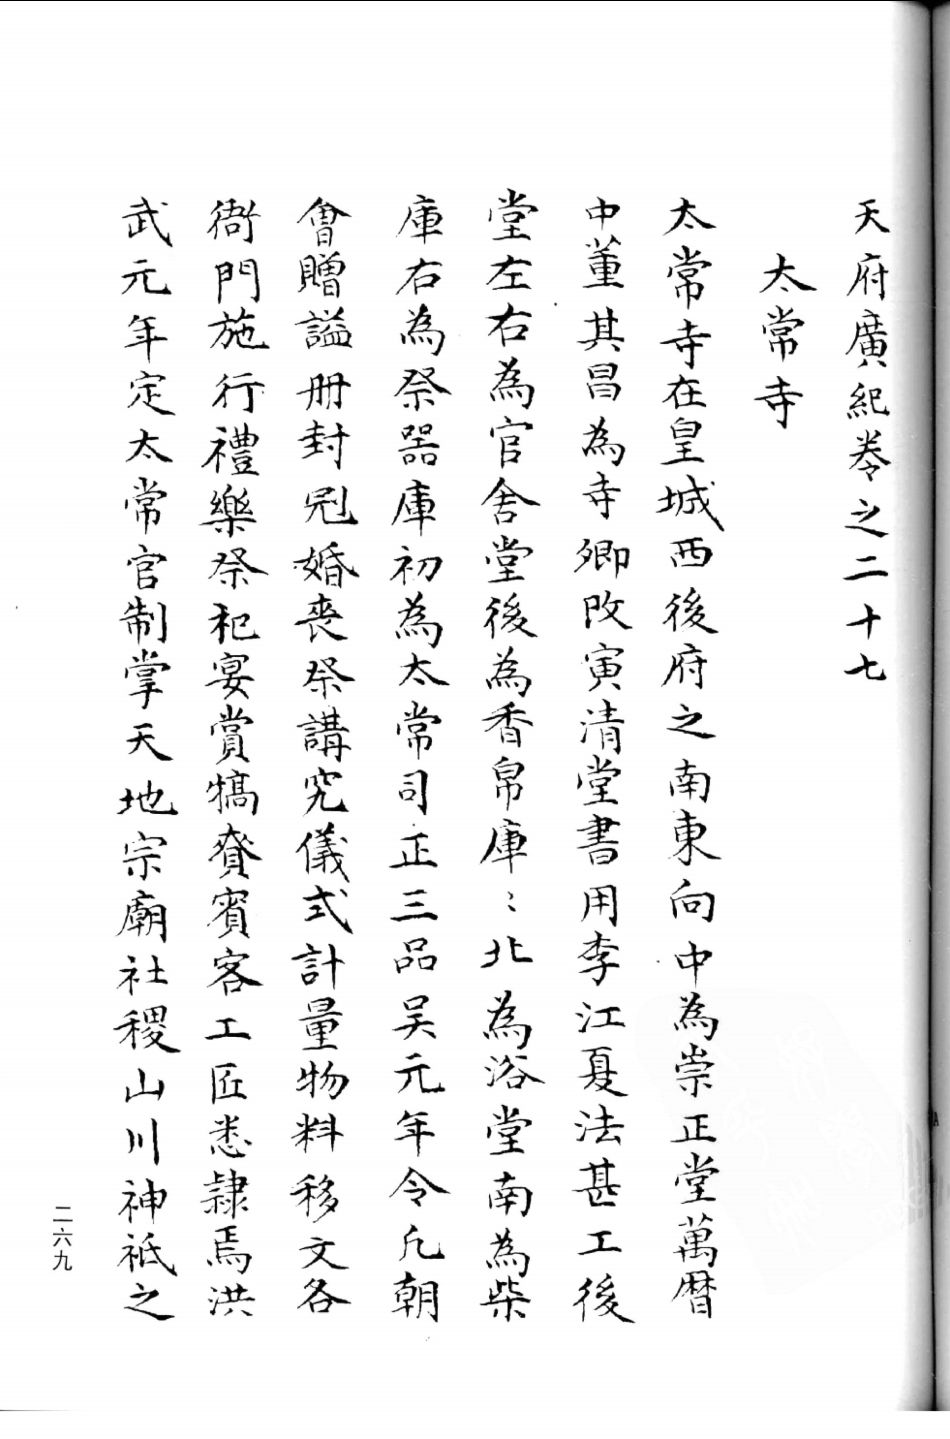 天府廣紀卷之二十七
太常寺
太常寺在皇城西後府之南東向中為崇正堂萬曆
中董其昌為寺卿改寅清堂書用李江夏法甚工後
堂左右為官舍堂後為香帛庫〻北為浴堂南為柴
庫右為祭器庫初為太常司正三品吳元年令凡朝
會贈謚冊封冠婚喪祭講究儀式計量物料移文各
衙門施行禮樂祭祀宴賞犒賚賓客工匠悉隸焉洪
武元年定太常官制掌天地宗廟社稷山川神祇之
二六九